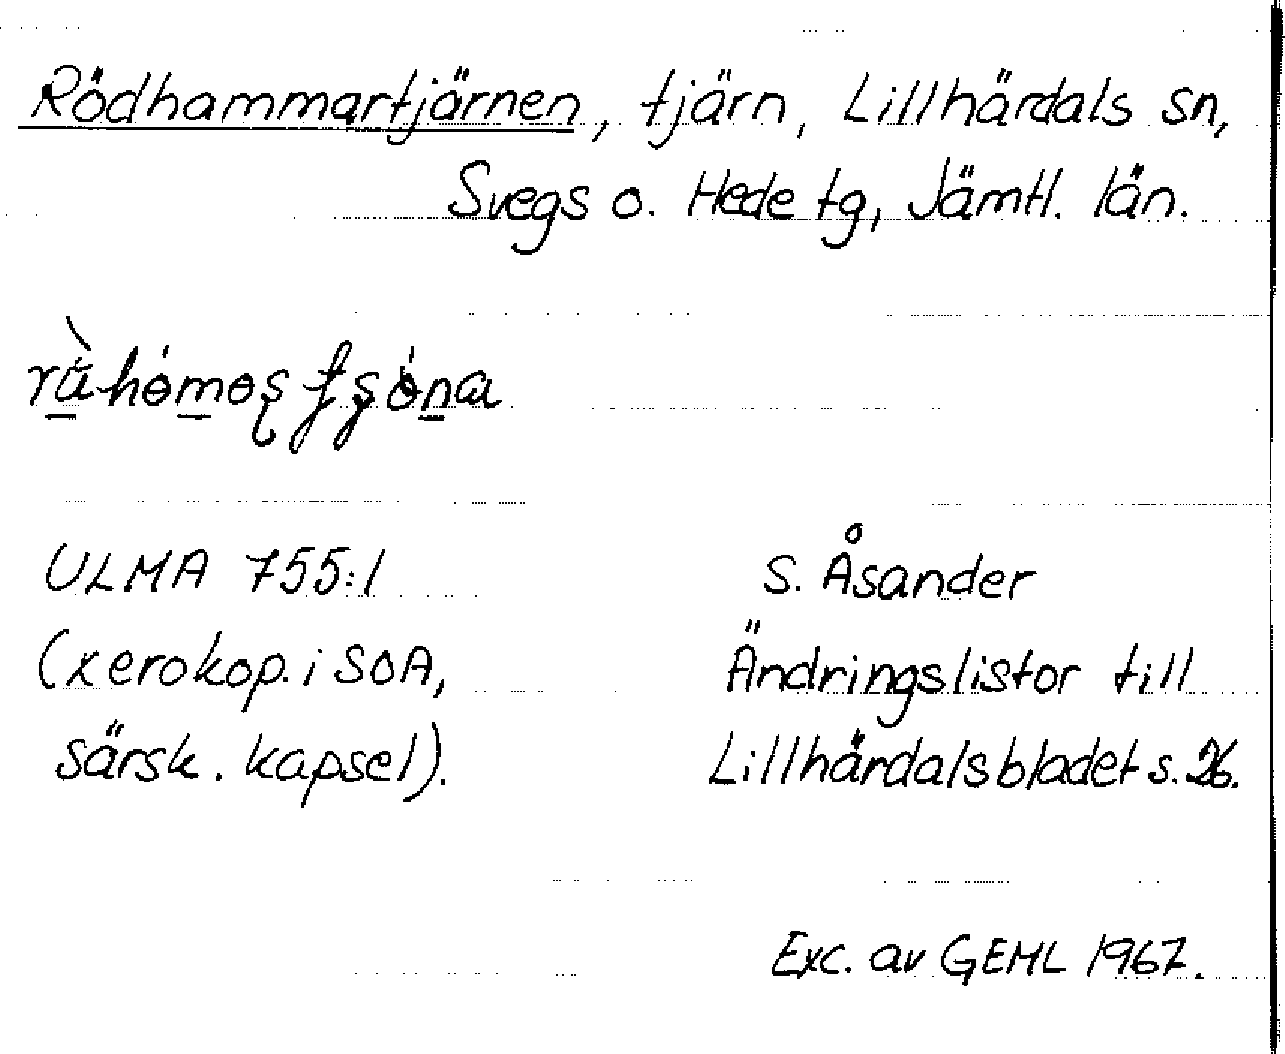 Rödhammartjärnen, tjärn, Lillhärdals sn,
Svegs o. Hede tg, Jämtl. län.
ULMA 755:1
(xerokop. i SOA,
särsk. kapsel).
S. Åsander
Ändringslistor till
Lillhärdalsbladet s. 26.
Exc. av GEML 1967.